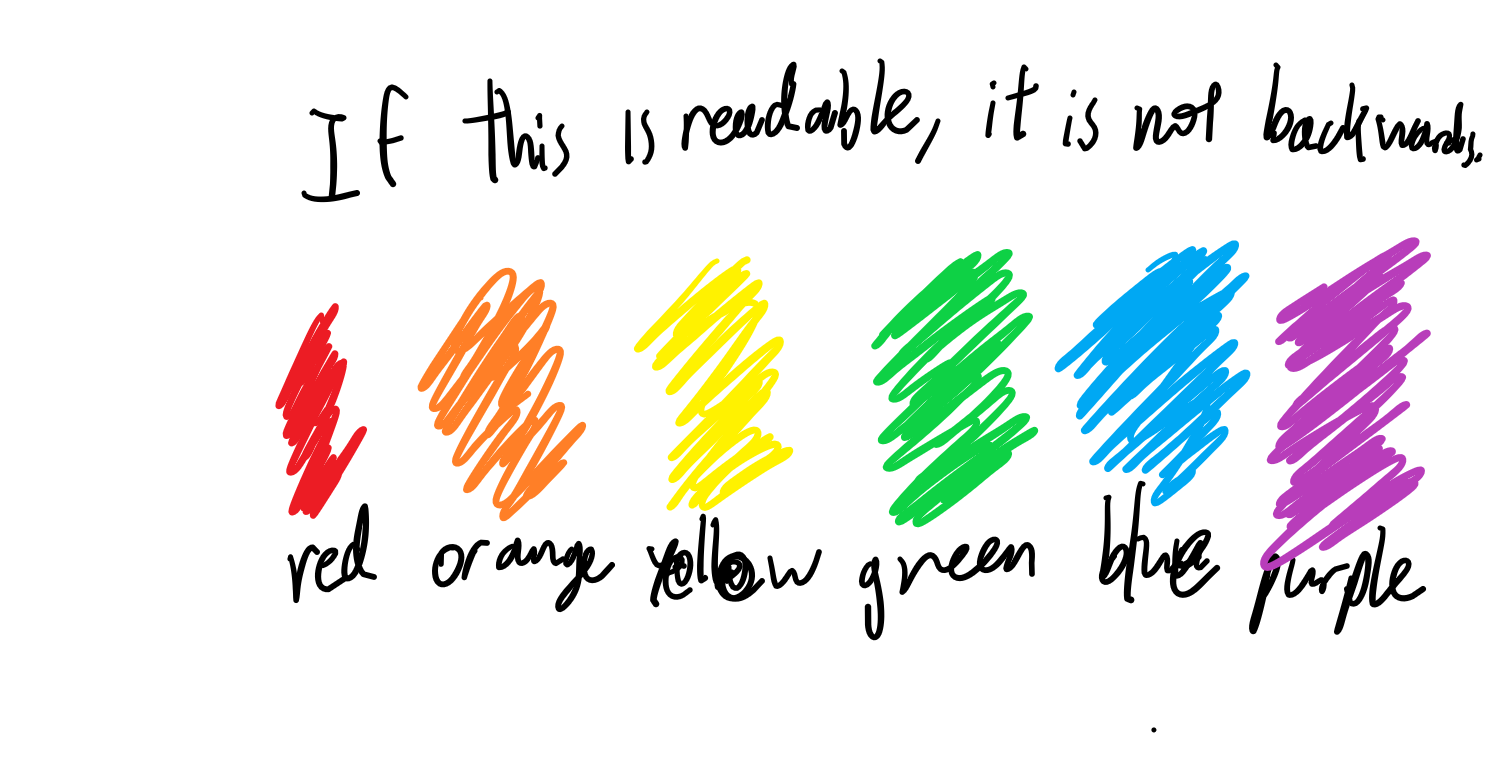 If this is readable, it is not backwards.
red orange yellow green blue purple